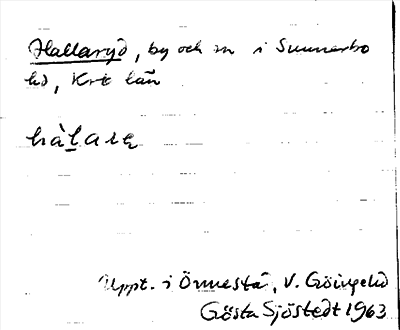 Hallaryd, by och sn i Sunnerbo
hd, Krb län
hàlarę
Uppt. i Önnestad, V. Göingehd
Gösta Sjöstedt 1963